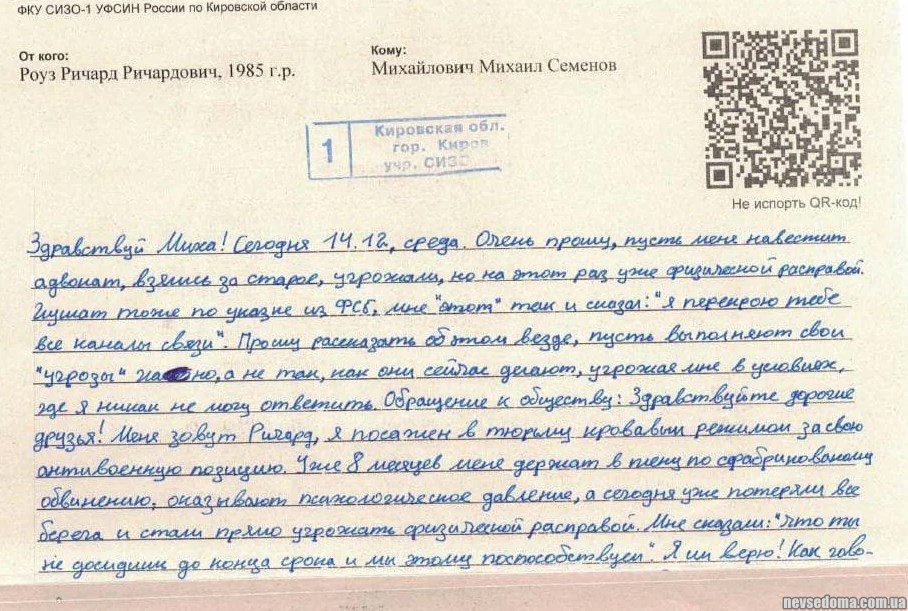 ФКУ СИЗО-1 УФСИН России по Кировской области
От кого:
Роуз Ричард Ричардович, 1985 г.р.
Кому:
Михайлович Михаил Семенов
1
Кировская обл.
гор. Киров
учр. СИЗО
Не испорть QR-код!
Здравствуй Миха! Сегодня 14.12, среда. Очень прошу, пусть меня навестит
адвокат, взялись за старое, угрожали, но на этот раз уже физической расправой.
Глушат тоже по указке из ФСБ, мне "этот" так и сказал: "я перекрою тебе
все каналы связи". Прошу рассказать об этом везде, пусть выполняют свои
"угрозы" но, а не так, как они сейчас делают, угрожая мне в условиях,
где я никак не могу ответить. Обращение к обществу: Здравствуйте дорогие
друзья! Меня зовут Ричард, я посажен в тюрьму кровавым режимом за свою
антивоенную позицию. Уже 8 месяцев меня держат в плену по сфабрикованому
обвинению, оказывают психологическое давление, а сегодня уже потеряли все
берега и стали прямо угрожать физической расправой. Мне сказали: "что ты
не досидишь до конца срока и мы этому поспособствуем". Я им верю! Как гово-
nevsedoma.com.ua